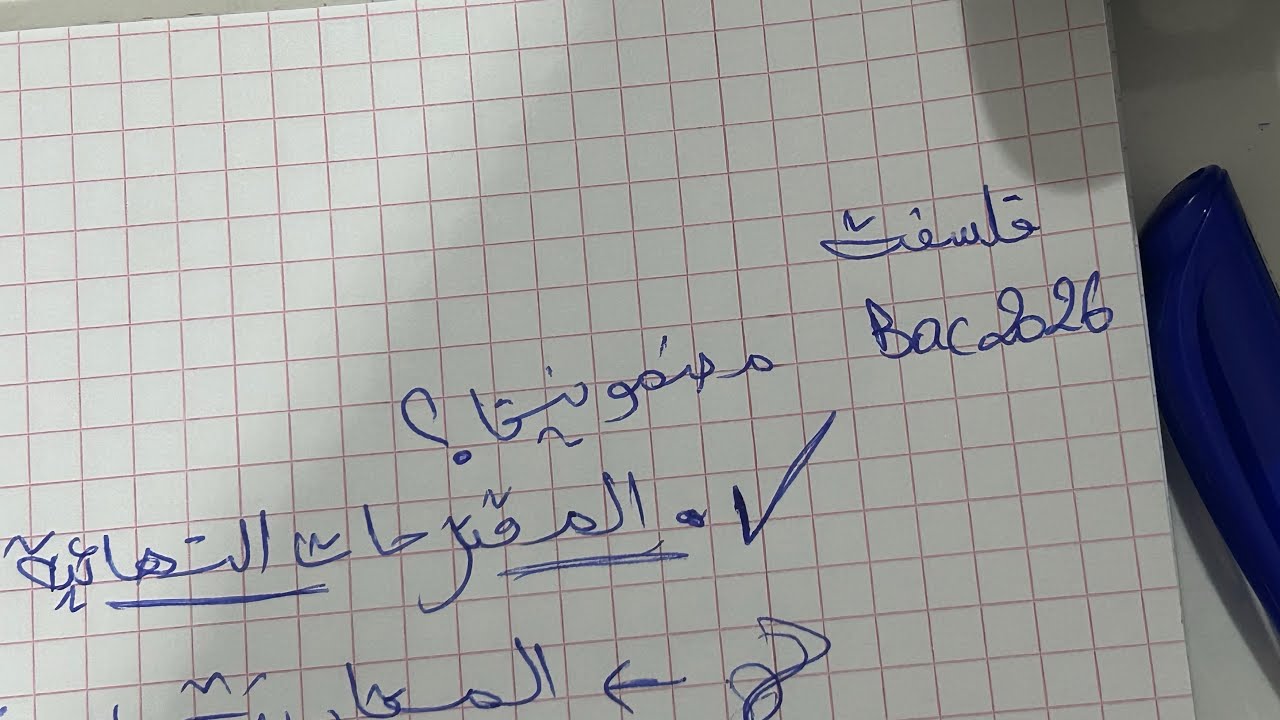 فلسفة
Bac 2026
مضمونيا ؟
✓. المقترحات النهائية
← المقاربة